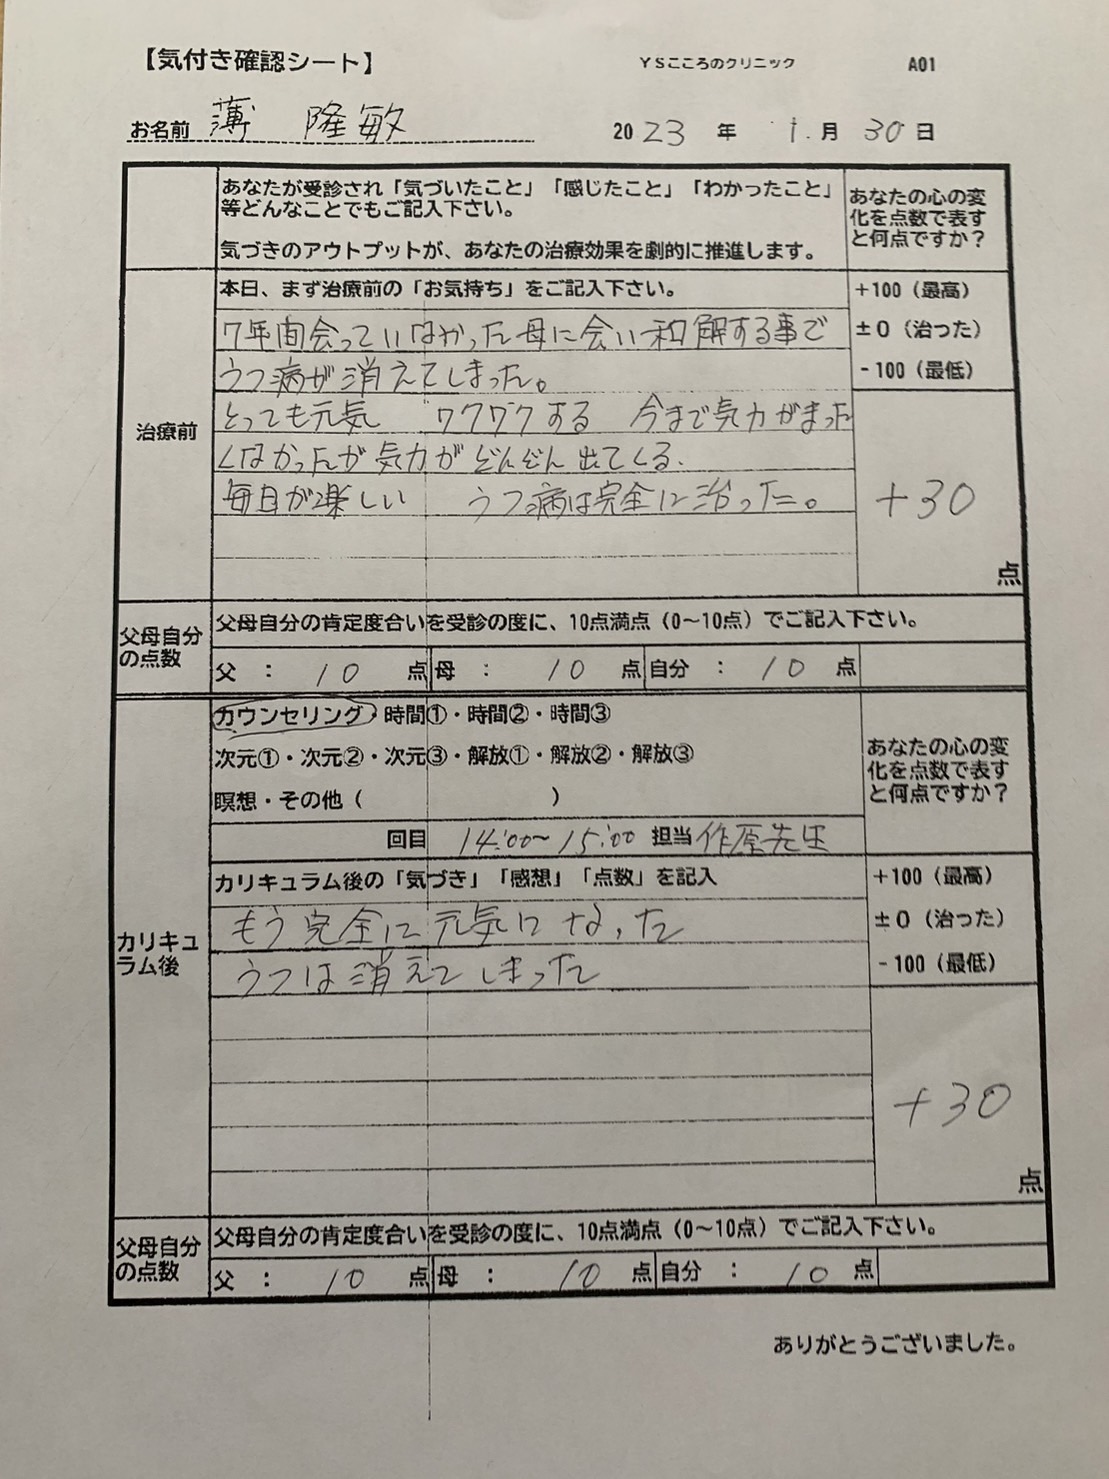 【気付き確認シート】
YSこころのクリニック
A01
お名前 薄 隆敏
2023年 1.月30日
あなたが受診され「気づいたこと」「感じたこと」「わかったこと」
等どんなことでもご記入下さい。
気づきのアウトプットが、あなたの治療効果を劇的に推進します。
あなたの心の変
化を点数で表す
と何点ですか？
治療前
本日、まず治療前の「お気持ち」をご記入下さい。
7年間会っていなかった母に会い和解する事で
うつ病が消えてしまった。
とっても元気 ワクワクする 今まで気力がまった
くなかったが気力がどんどん出てくる.
毎日が楽しい うつ病は完全に治った。
+100（最高）
±0（治った）
-100（最低）
+30
点
父母自分
の点数
父母自分の肯定度合いを受診の度に、10点満点（0～10点）でご記入下さい。
父 ： 10 点 母 ： 10 点 自分 ： 10 点
カリキュ
ラム後
カウンセリング・時間①・時間②・時間③
次元①・次元②・次元③・解放①・解放②・解放③
瞑想・その他（ ）
回目 14:00～15:00 担当 作原先生
あなたの心の変
化を点数で表す
と何点ですか？
カリキュラム後の「気づき」「感想」「点数」を記入
もう完全に元気になった
うつは消えてしまった
+100（最高）
±0（治った）
-100（最低）
+30
点
父母自分
の点数
父母自分の肯定度合いを受診の度に、10点満点（0～10点）でご記入下さい。
父 ： 10 点 母 ： 10 点 自分 ： 10 点
ありがとうございました。